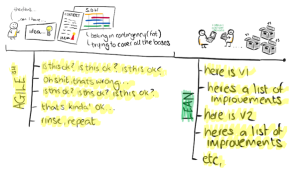 idea
S.O.W
(baking in contingency (fat)
(trying to cover all the bases
AGILE
is this ok? is this ok? is this ok?
Oh shit thats wrong...
is this ok? is this ok? is this ok?
thats kinda' ok...
rinse, repeat
LEAN
here is V1
heres a list of
improvements
here is V2
heres a list of
improvements
etc,